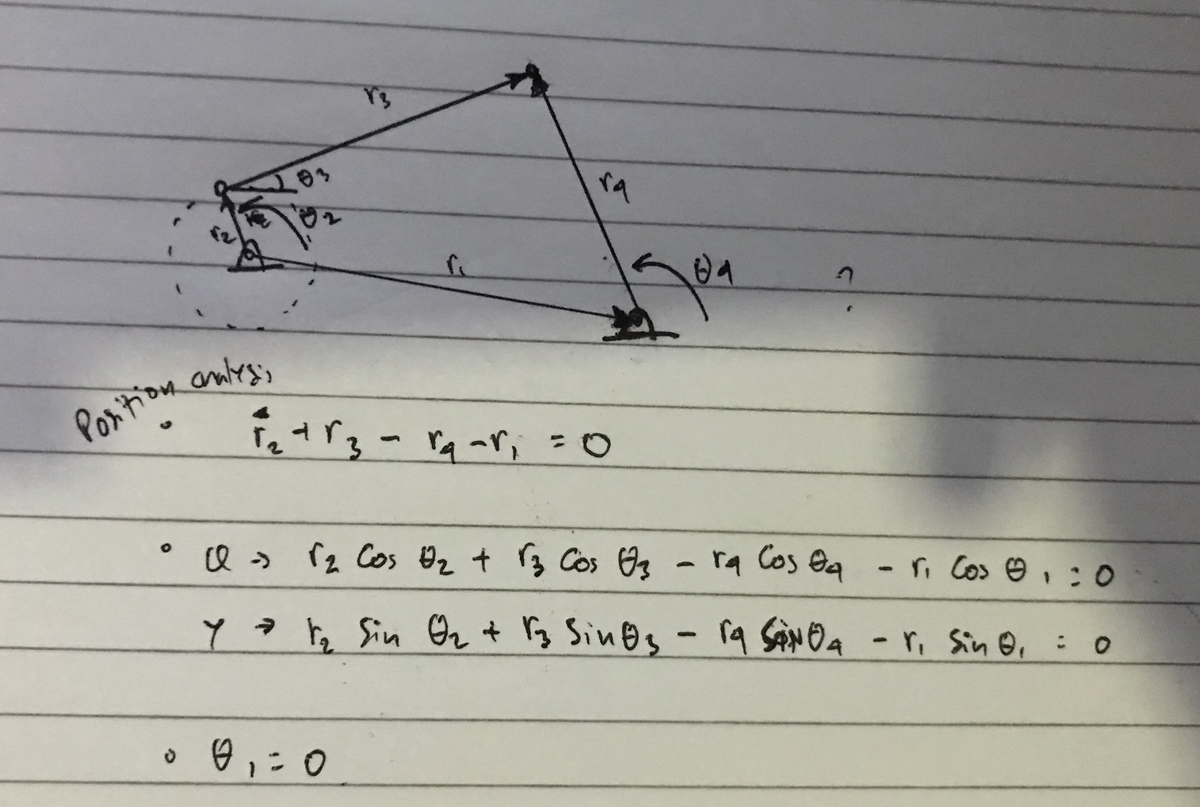 r₃
θ3
r₄
θ2
r₂
r₁
θ4
?
Position analysis
• r₂ + r₃ - r₄ - r₁ = 0
• x → r₂ Cos θ₂ + r₃ Cos θ₃ - r₄ Cos θ₄ - r₁ Cos θ₁ = 0
Y → r₂ Sin θ₂ + r₃ Sin θ₃ - r₄ Sin θ₄ - r₁ Sin θ₁ = 0
• θ₁ = 0